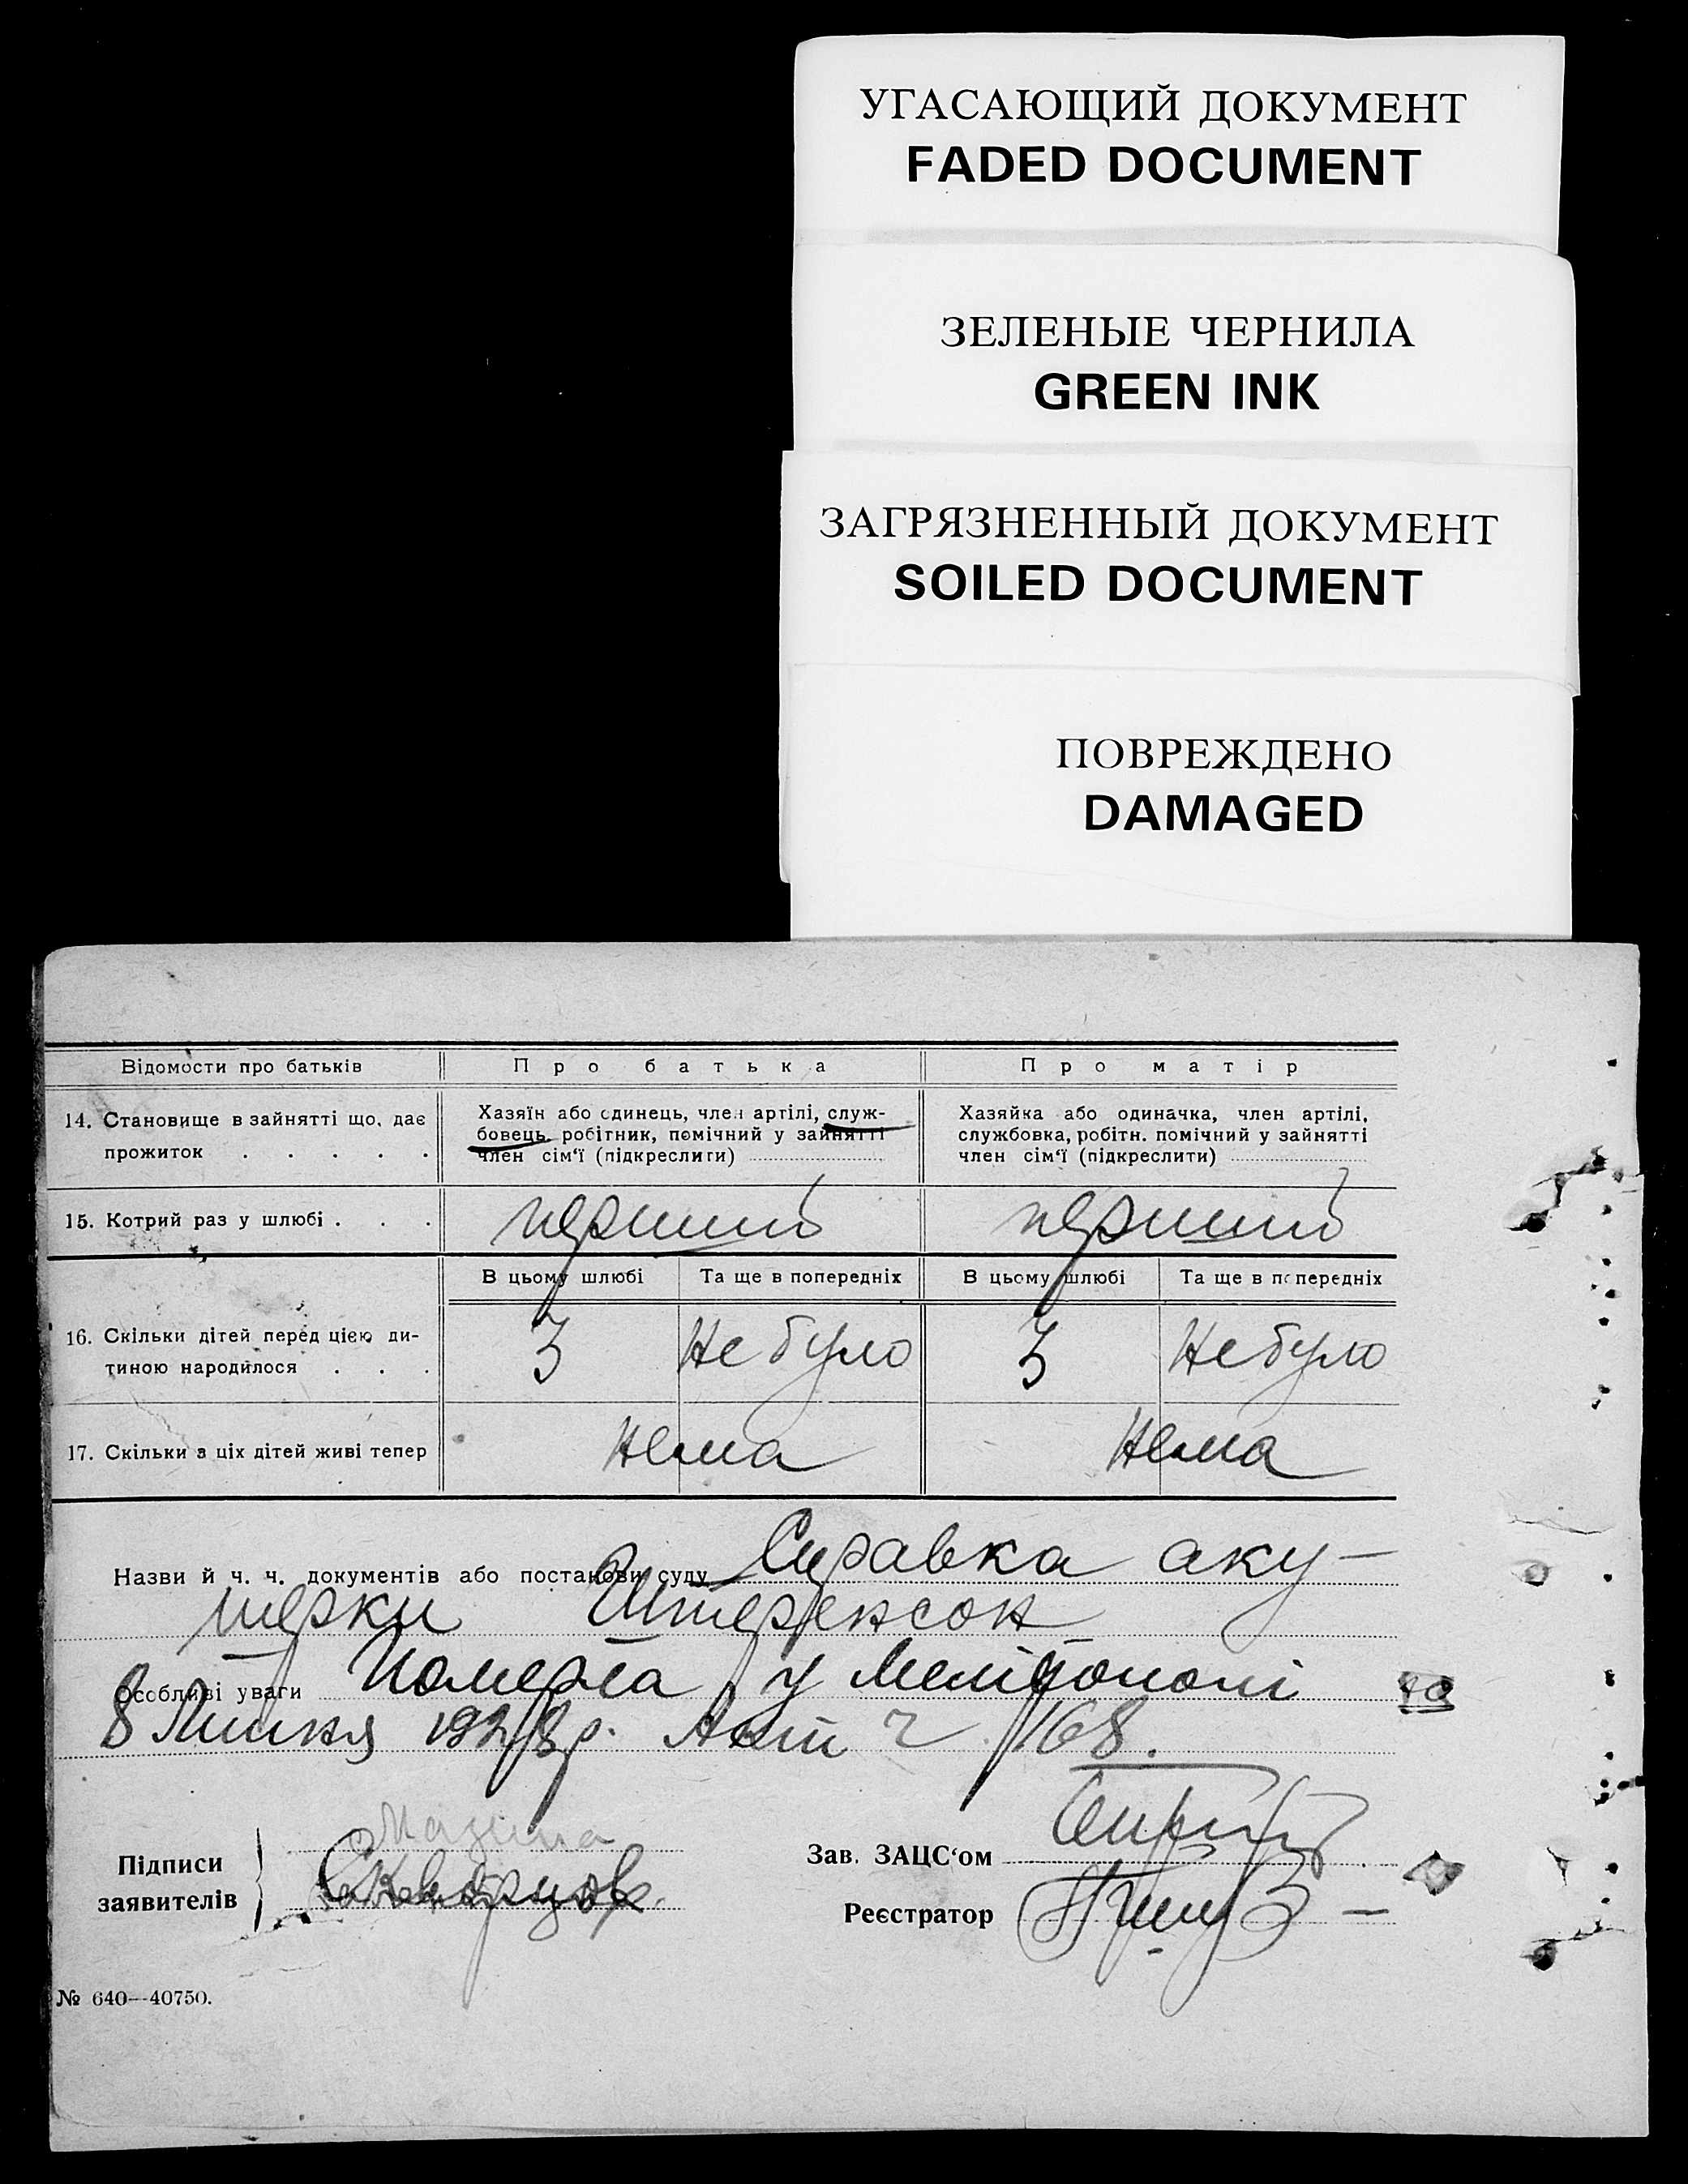 УГАСАЮЩИЙ ДОКУМЕНТ
FADED DOCUMENT
ЗЕЛЕНЫЕ ЧЕРНИЛА
GREEN INK
ЗАГРЯЗНЕННЫЙ ДОКУМЕНТ
SOILED DOCUMENT
ПОВРЕЖДЕНО
DAMAGED
Відомости про батьків
Про батька
Про матір
14. Становище в зайнятті що, дає
прожиток . . . . .
Хазяїн або одинець, член артілі, служ-
бовець, робітник, помічний у зайнятті
член сім'ї (підкреслити)
Хазяйка або одиначка, член артілі,
службовка, робітн. помічний у зайнятті
член сім'ї (підкреслити)
15. Котрий раз у шлюбі . . .
перший
перший
В цьому шлюбі
Та ще в попередніх
В цьому шлюбі
Та ще в попередніх
16. Скільки дітей перед цією ди-
тиною народилося . . .
3
Не було
3
Не було
17. Скільки з ціх дітей живі тепер
Нема
Нема
Назви й ч. ч. документів або постанови суду Справка аку-
шерки
Особливі уваги Померла у Мелітополі
8 Липня 1928 р. Акт ч 168.
Підписи
заявителів
Скворцов
Зав. ЗАЦС'ом
Реєстратор
№ 640—40750.